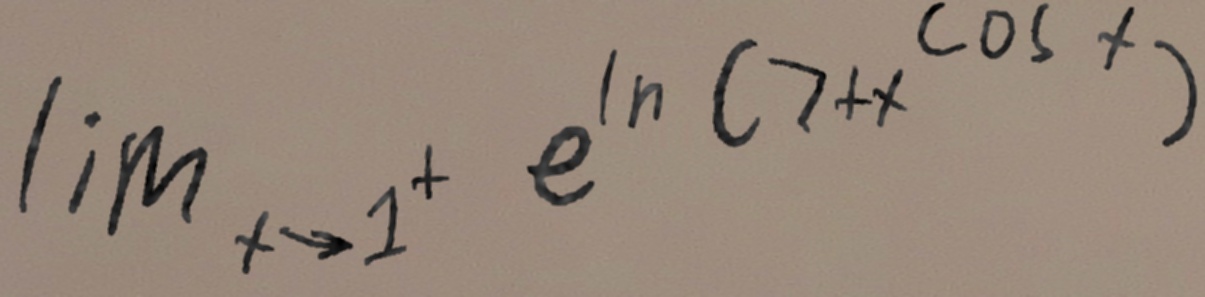 lim x→1⁺ e^ln(7+x^cos x)